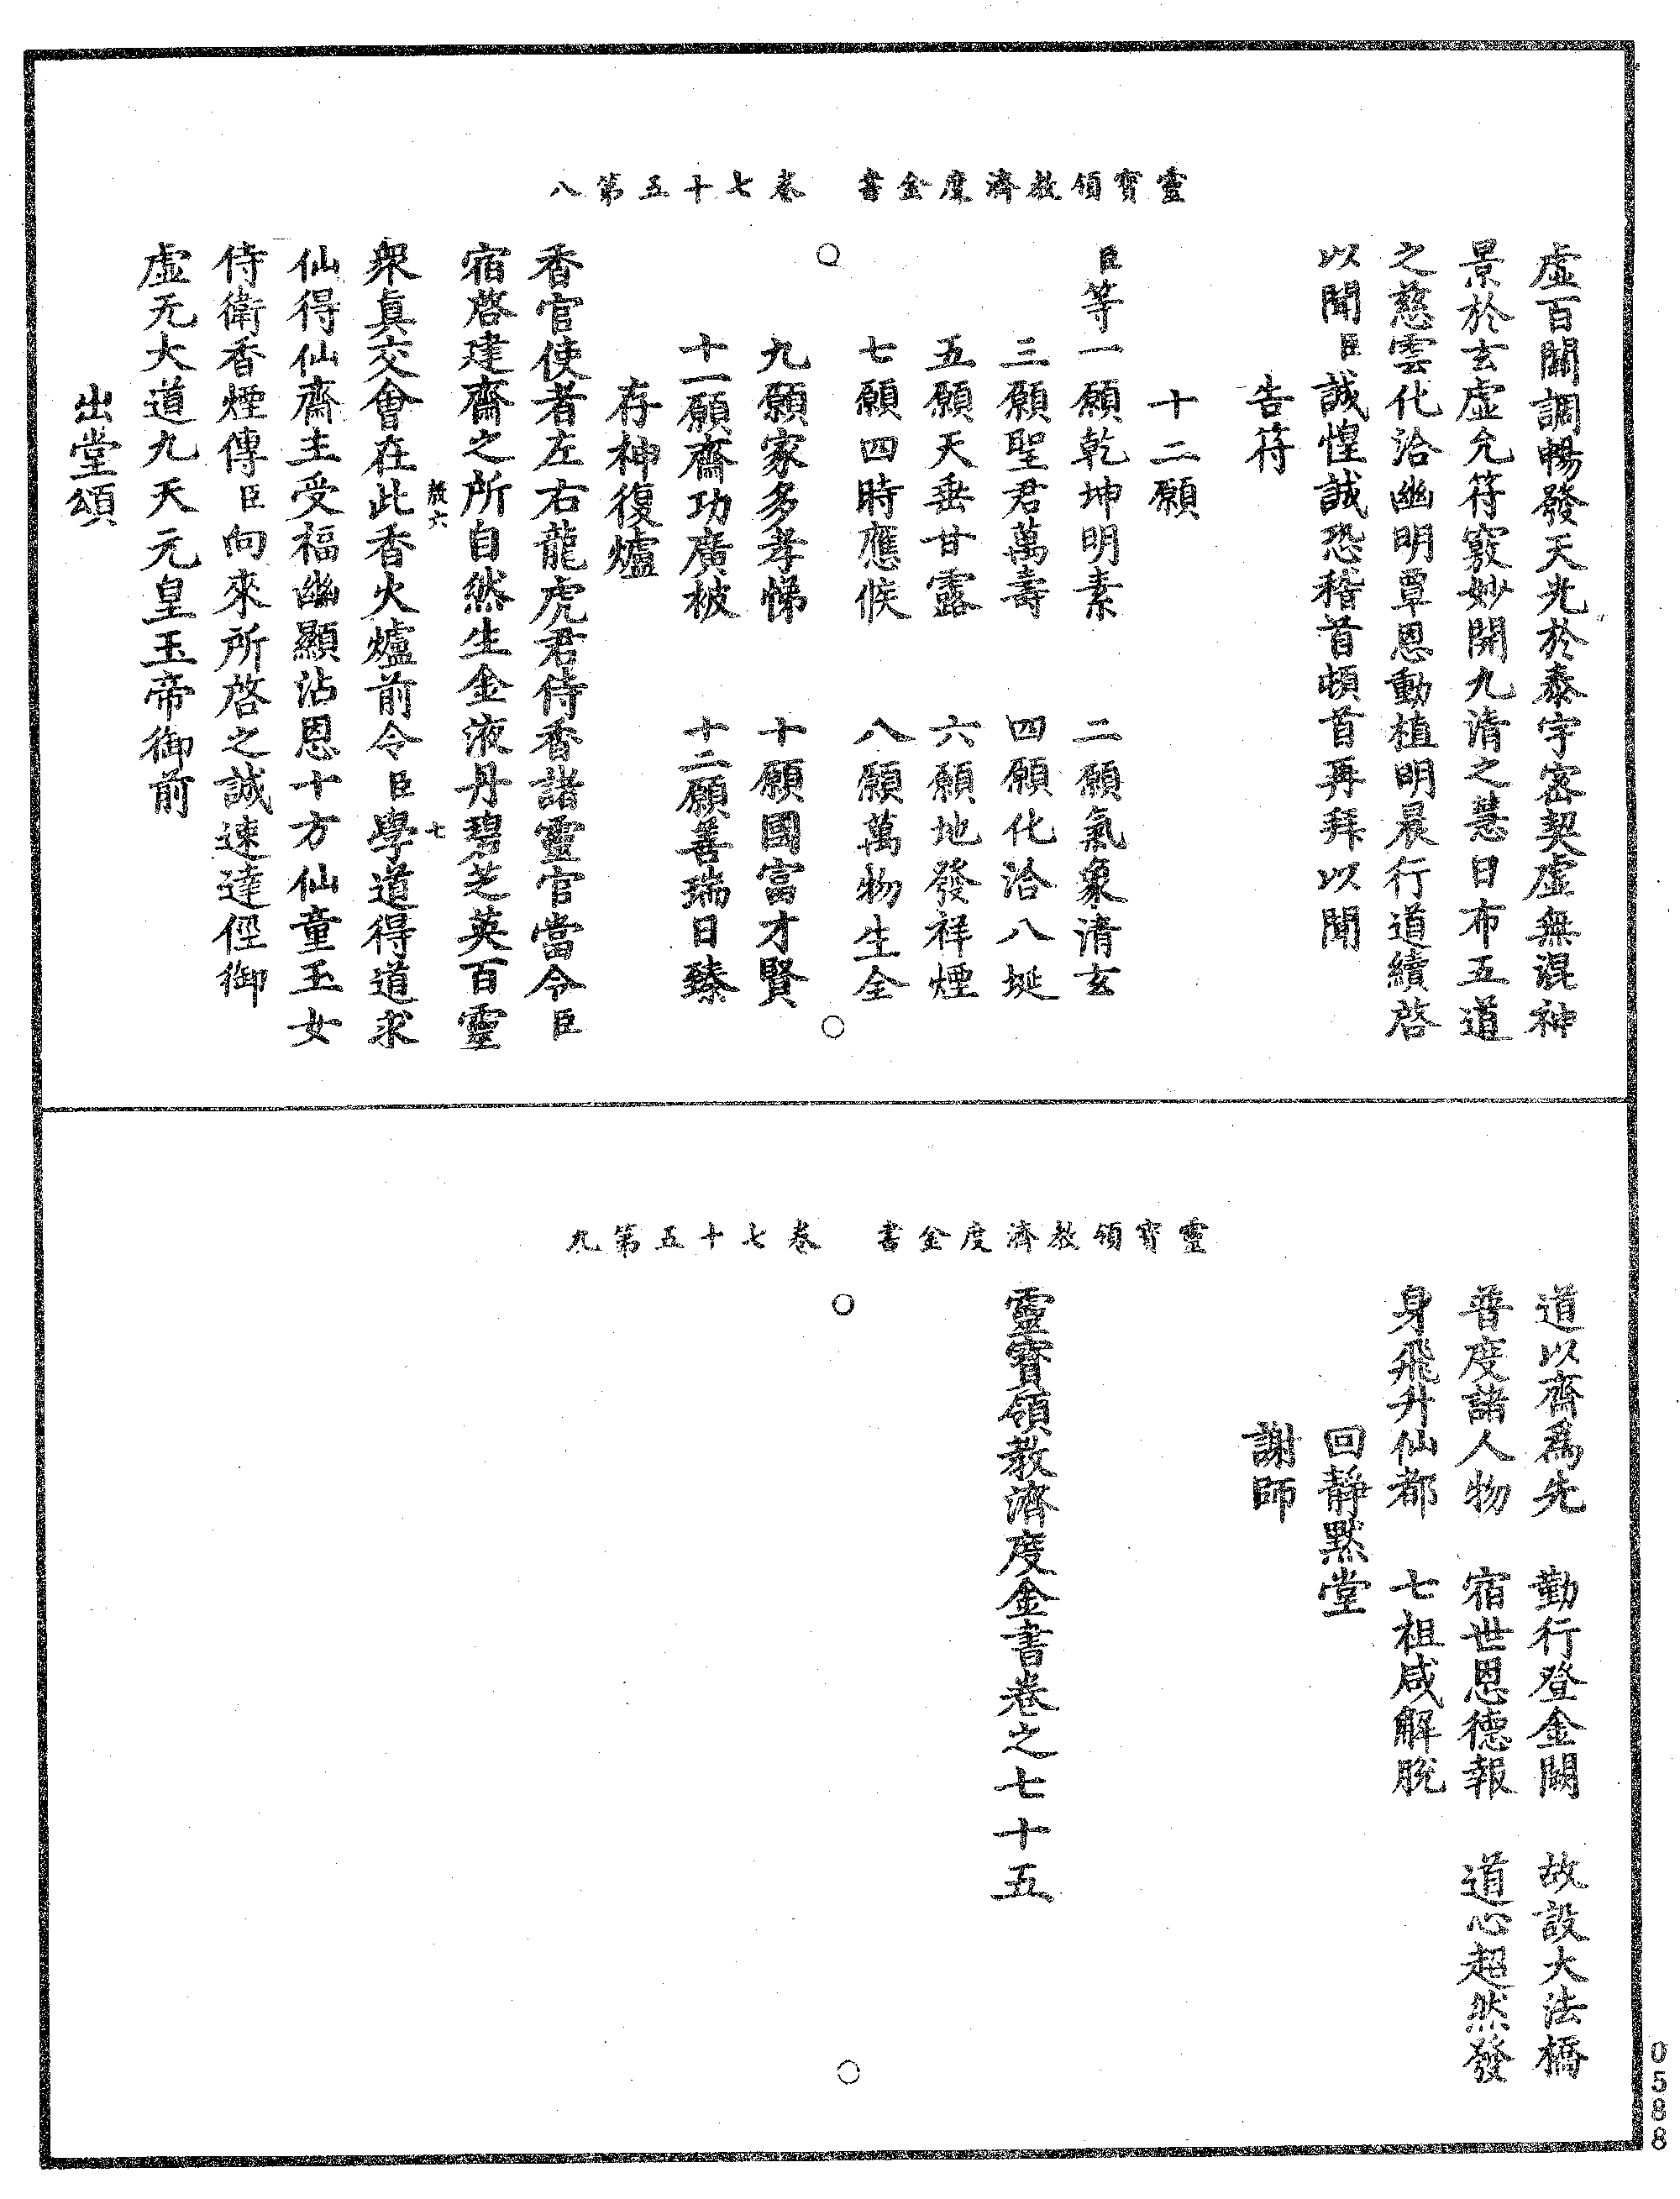 靈寶領教濟度金書　卷七十五第八
虛百關調暢發天光於泰宇密契虛無混神
景於玄虛允符竅妙開九清之慧日布五道
之慈雲化洽幽明覃恩動植明晨行道續啓
以聞臣誠惶誠恐稽首頓首再拜以聞
告符
十二願
臣等一願乾坤明素　二願氣象清玄
三願聖君萬壽　四願化洽八埏
五願天垂甘露　六願地發祥煙
七願四時應候　八願萬物生全
九願家多孝悌　十願國富才賢
十一願齋功廣被　十二願善瑞日臻
存神復爐
香官使者左右龍虎君侍香諸靈官當令臣
宿啓建齋之所自然生金液丹碧芝英百靈
衆眞交會在此香火爐前令臣學道得道求
仙得仙齋主受福幽顯沾恩十方仙童玉女
侍衛香煙傳臣向來所啓之誠速達徑御
虛无大道九天元皇玉帝御前
出堂頌
靈寶領教濟度金書　卷七十五第九
道以齋爲先　勤行登金闕　故設大法橋
普度諸人物　宿世恩德報　道心超然發
身飛升仙都　七祖咸解脫
回靜默堂
謝師
靈寶領教濟度金書卷之七十五
0588